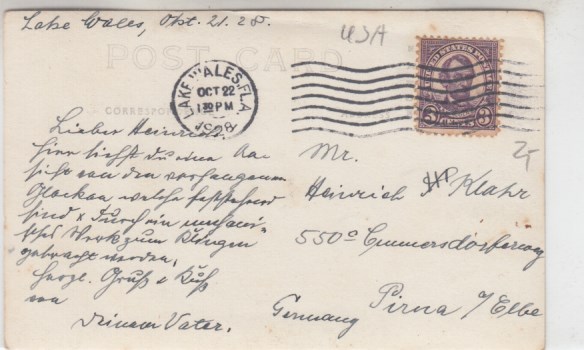 Lake Wales, Okt. 21. 28.
USA
POST CARD
LAKE WALES, FLA.
OCT 22
1 30 PM
1928
UNITED STATES POSTAGE
3 3
CORRESPONDENCE
Lieber Heinrich.
hier siehst du eine An
sicht von den vorhangenen
Glocken welche feststehend
sind & durch ein mechani-
sches Werk zum Klingen
gebracht werden.
Herzl. Gruß & Kuß
von
deinem Vater.
Mr.
Heinrich Klahr
550
Pirna a/Elbe
Germany